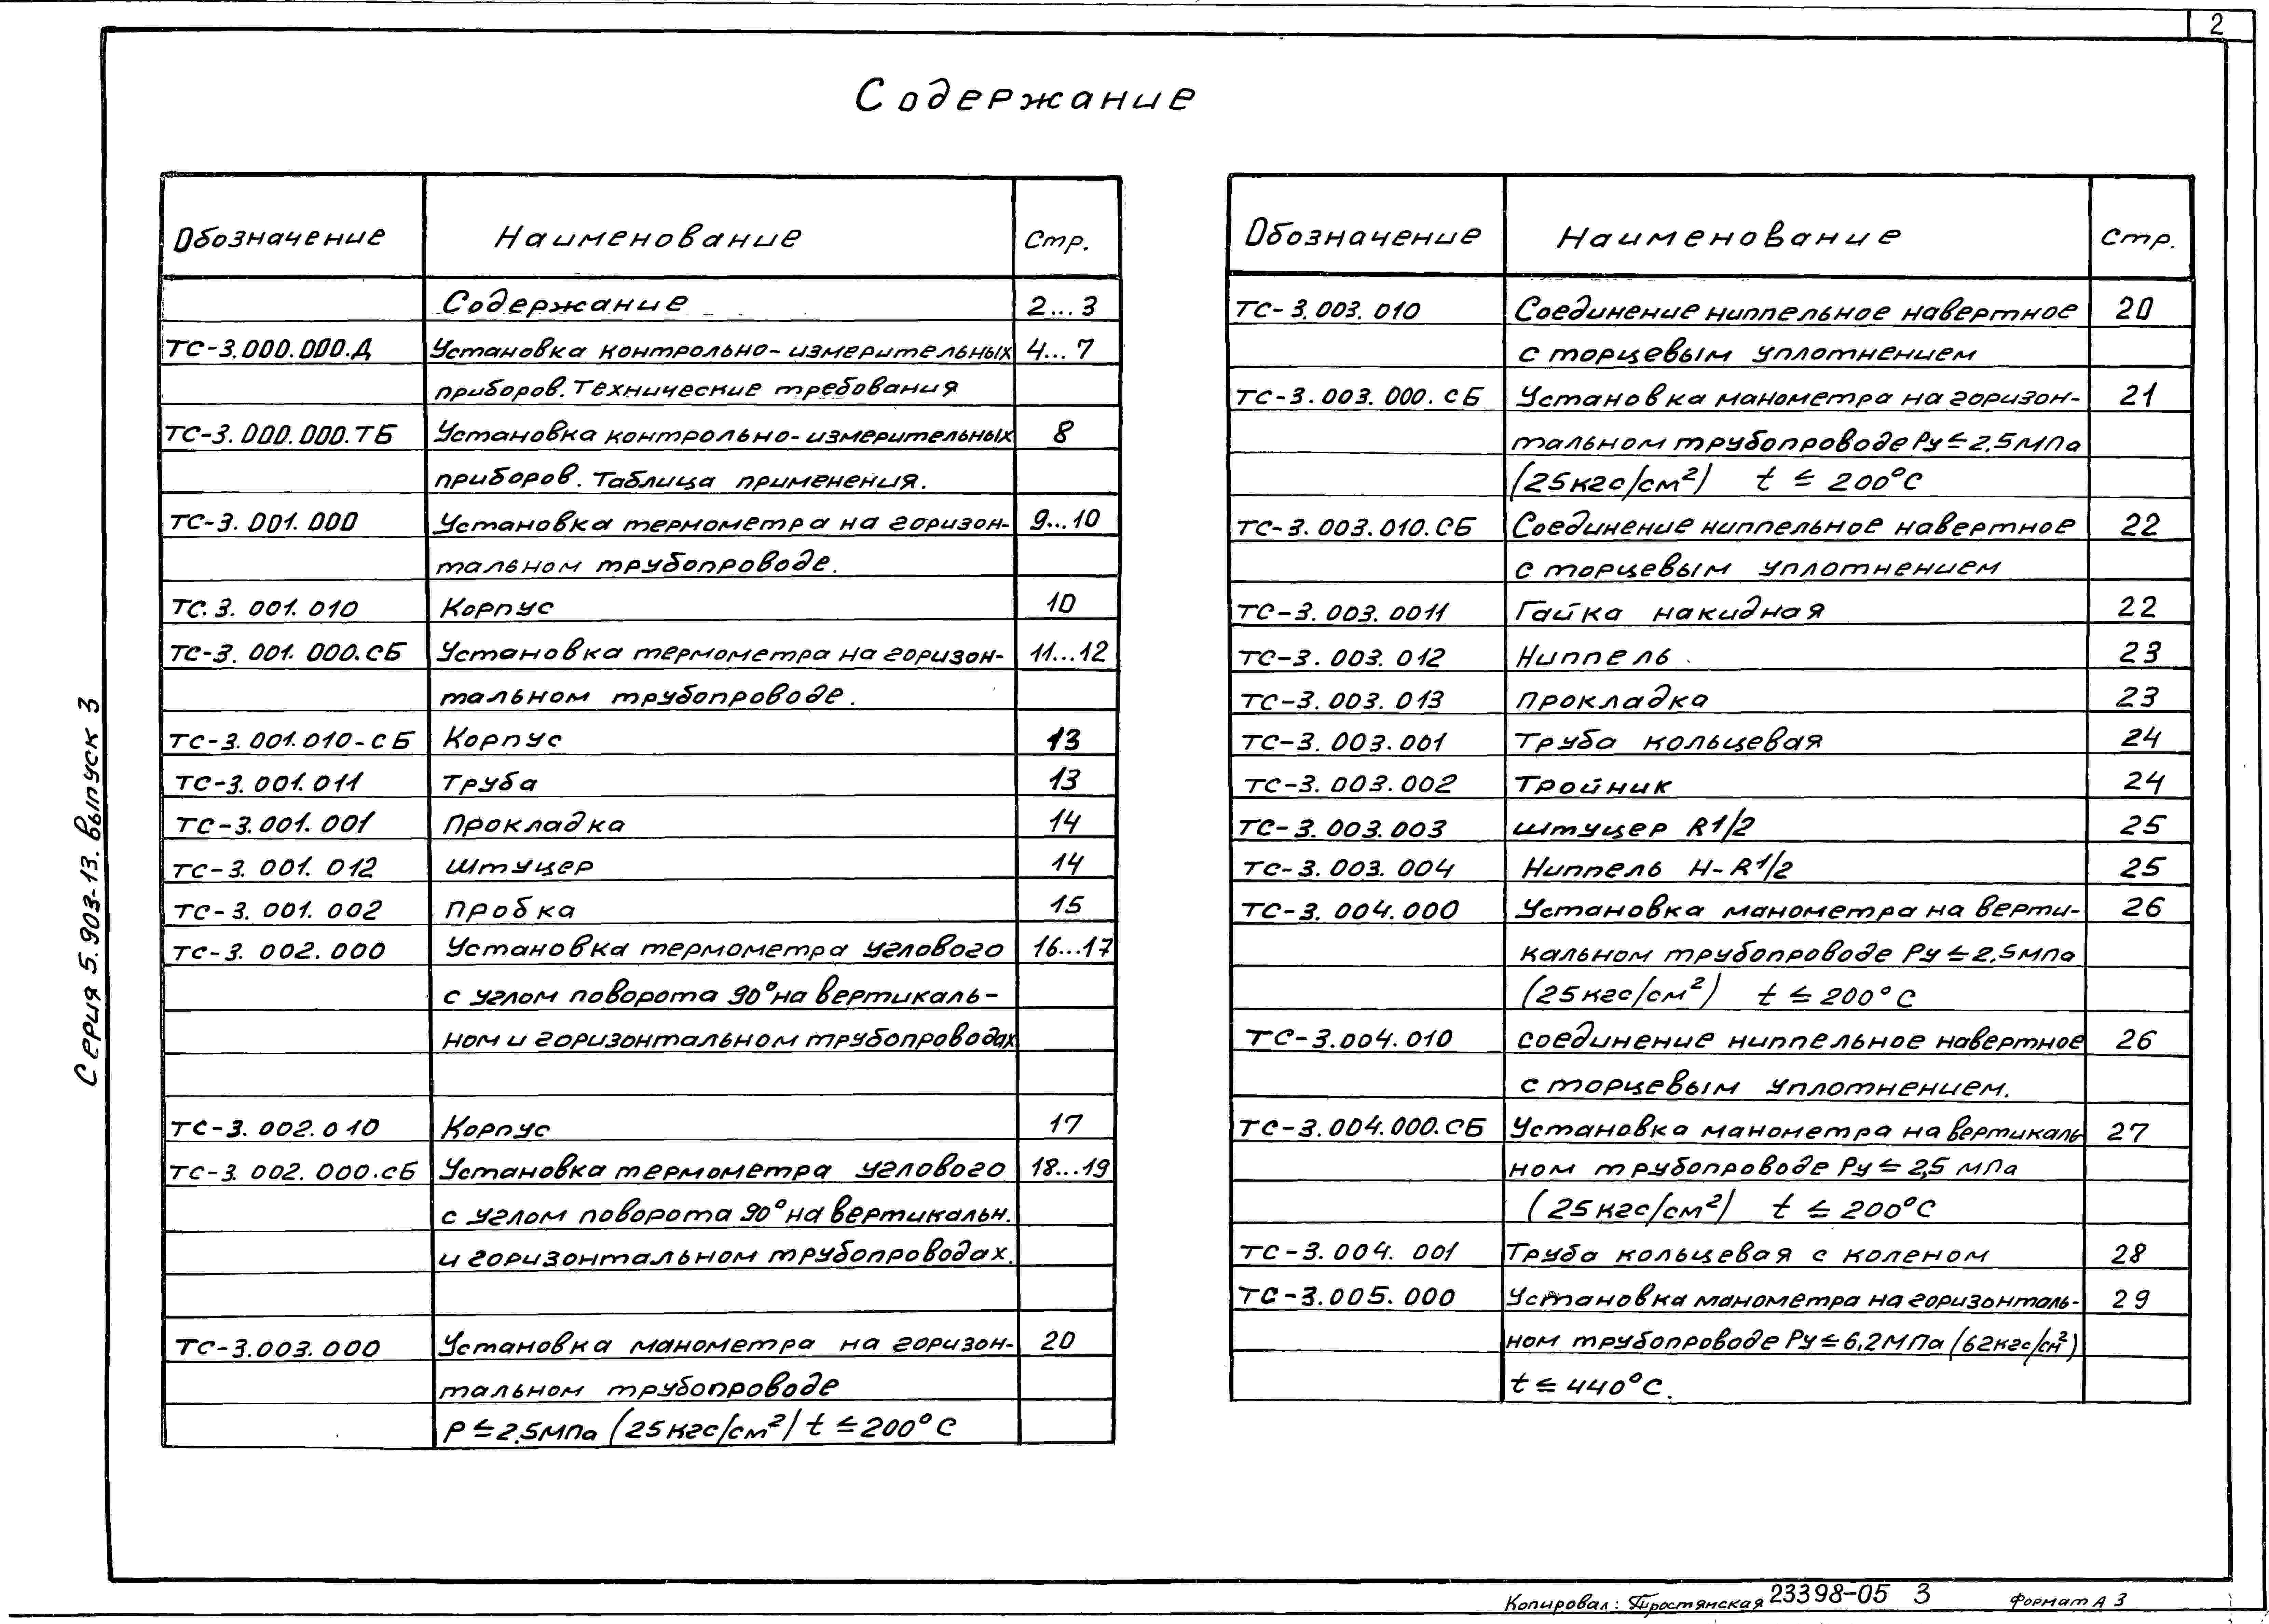 2
Содержание
Обозначение Наименование Стр.
Содержание 2...3
ТС-3.000.000.Д Установка контрольно-измерительных 4...7
приборов. Технические требования
ТС-3.000.000.ТБ Установка контрольно-измерительных 8
приборов. Таблица применения.
ТС-3.001.000 Установка термометра на горизон- 9...10
тальном трубопроводе.
ТС.3.001.010 Корпус 10
ТС-3.001.000.СБ Установка термометра на горизон- 11...12
тальном трубопроводе.
ТС-3.001.010-СБ Корпус 13
ТС-3.001.011 Труба 13
ТС-3.001.001 Прокладка 14
ТС-3.001.012 Штуцер 14
ТС-3.001.002 Пробка 15
ТС-3.002.000 Установка термометра углового 16...17
с углом поворота 90° на вертикаль-
ном и горизонтальном трубопроводах
ТС-3.002.010 Корпус 17
ТС-3.002.000.СБ Установка термометра углового 18...19
с углом поворота 90° на вертикальн.
и горизонтальном трубопроводах.
ТС-3.003.000 Установка манометра на горизон- 20
тальном трубопроводе
Р ≤ 2,5 МПа (25 кгс/см²) t ≤ 200°С
Обозначение Наименование Стр.
ТС-3.003.010 Соединение ниппельное навертное 20
с торцевым уплотнением
ТС-3.003.000.СБ Установка манометра на горизон- 21
тальном трубопроводе Ру ≤ 2,5 МПа
(25 кгс/см²) t ≤ 200°С
ТС-3.003.010.СБ Соединение ниппельное навертное 22
с торцевым уплотнением
ТС-3.003.0011 Гайка накидная 22
ТС-3.003.012 Ниппель 23
ТС-3.003.013 Прокладка 23
ТС-3.003.001 Труба кольцевая 24
ТС-3.003.002 Тройник 24
ТС-3.003.003 Штуцер R1/2 25
ТС-3.003.004 Ниппель Н-R1/2 25
ТС-3.004.000 Установка манометра на верти- 26
кальном трубопроводе Ру ≤ 2,5 МПа
(25 кгс/см²) t ≤ 200°С
ТС-3.004.010 соединение ниппельное навертное 26
с торцевым уплотнением.
ТС-3.004.000.СБ Установка манометра на вертикаль 27
ном трубопроводе Ру ≤ 2,5 МПа
(25 кгс/см²) t ≤ 200°С
ТС-3.004.001 Труба кольцевая с коленом 28
ТС-3.005.000 Установка манометра на горизонталь- 29
ном трубопроводе Ру ≤ 6,2 МПа (62 кгс/см²)
t ≤ 440°С.
Серия 5.903-13. выпуск 3
Копировал: Простянская 23398-05 3 Формат А3